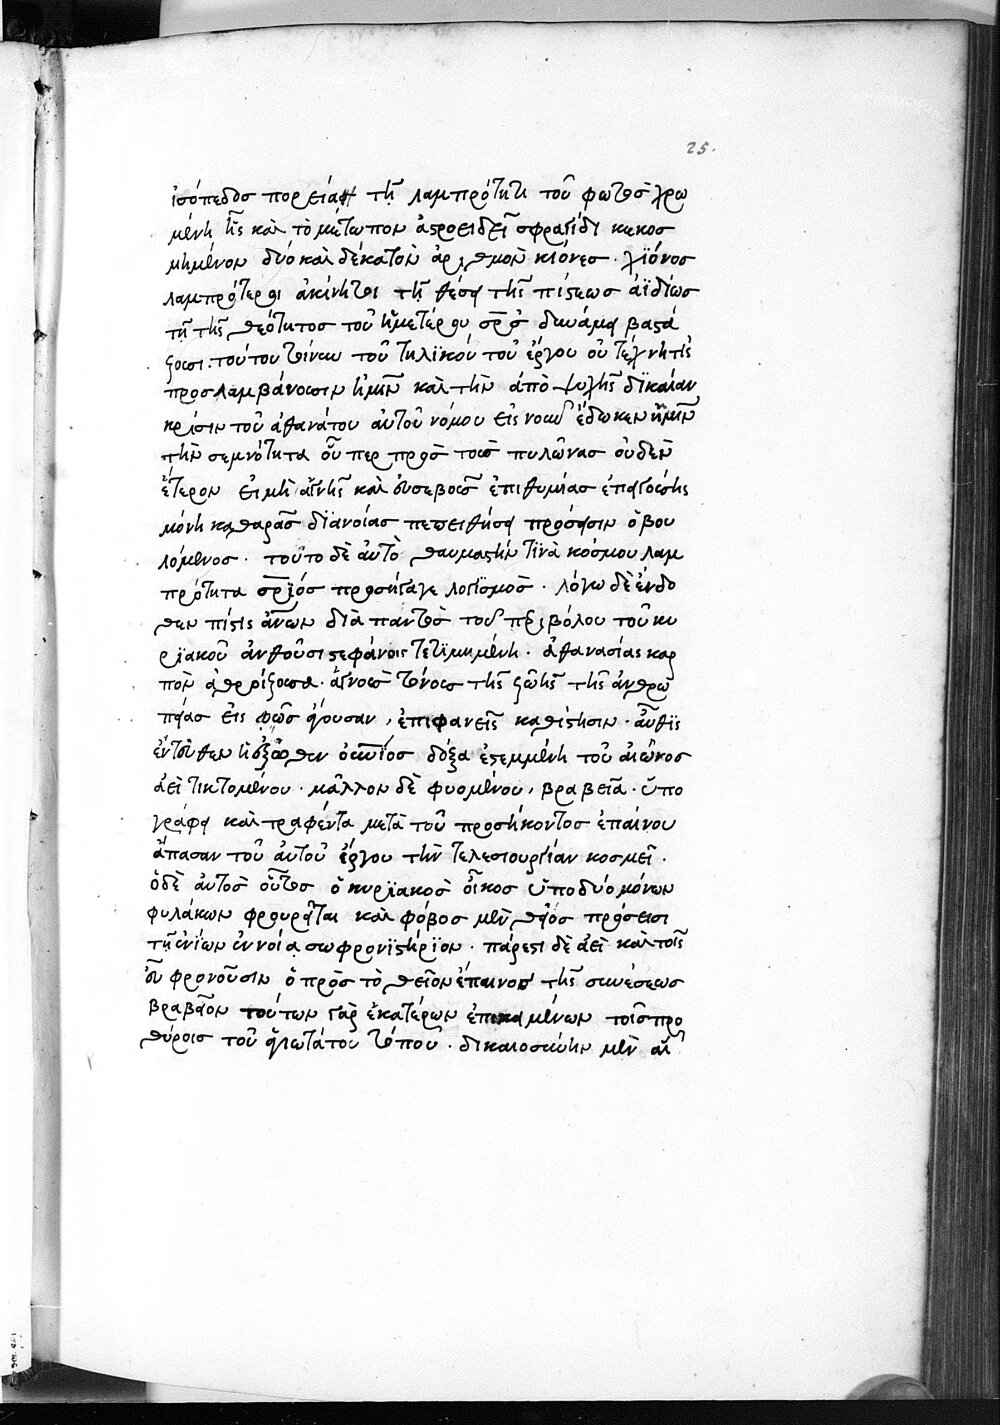 25.
ἰσόπεδος πορεία τῇ λαμπρότητι τοῦ φωτὸς χρω
μένη ἧς καὶ τὸ μέτωπον ἀστροειδεῖ σφραγίδι κεκοσ
μημένον δύο καὶ δέκατὸν ἀριθμὸν κίονες · χϊόνος
λαμπρότεροι ἀκίνητοι τῇ θέσει τῆς πίστεως ἀϊδίως
τῇ τῆς θεότητος τοῦ ἡμετέρου σρσ δυνάμει βαστά
ζουσι · τούτου τοίνυν τοῦ τηλϊκού του ἔργου οἱ τεχνητὶς
προσλαμβάνουσιν ἡμῖν καὶ τὴν ἀπὸ ψυχῆς δϊκαίαν
κρίσιν τοῦ ἀθανάτου αὐτοῦ νόμου εἰς νοῦν ἔδωκεν ἡμῖν
τὴν σεμνότητα οὗπερ πρὸς τοὺς πυλῶνας οὐδὲν
ἕτερον εἰ μὴ ἁγνῆς καὶ εὐσεβοῦς ἐπιθυμίας ἐπαγούσης
μόνη καθαρᾶς δϊανοίας πεποιθήσει πρόσεισιν ὁ βου
λόμενος · τοῦτο δὲ αὐτὸ θαυμαστὴν τϊνὰ κόσμου λαμ
πρότητα σρϊος προσήγαγε λογϊσμὸς · λόγω δὲ ἔνδο
θεν πίστις ἀνων διὰ παντὸς τοῦ περιβόλου τοῦ κυ
ρϊακοῦ ἀνθοῦσι στεφάνοις τετϊμημένη · ἀθανασίας καρ
πὸν ἀθρρίζουσα · ἁγνοὺς τόνους τῆς ζωῆς τῆς ἀνθρω
πείας εἰς φῶς ἄγουσαν, ἐπιφανεῖς καθίστησιν · αὖθϊς
ἐντεῦθεν δόξα ἐστεμμένη τοῦ αἰῶνος
ἀεὶ τικτομένου · μᾶλλον δὲ φυομένου, βραβεῖα · ὑπο
γράφει καὶ τραφέντα μετὰ τοῦ προσήκοντος ἐπαίνου
ἅπασαν τοῦ αὐτοῦ ἔργου τὴν τελεσιουργίαν κοσμεῖ ·
ὁ δὲ αὐτὸς οὗτος ὁ κυρϊακὸς οἶκος ὑπὸ δύο μόνων
φυλάκων φρουρεῖται καὶ φόβος μὲν θεῖος πρόσεισι
τῇ ἐνίων ἐννοία σωφρονϊστήρϊον · πάρεστι δὲ ἀεὶ καὶ τοῖς
εὖ φρονοῦσιν ὁ πρὸς τὸ θεῖον ἔπαινος τῆς συνέσεως
βραβεῖον τούτων γὰρ ἑκατέρων ἐπικειμένων τοῖς προ
θύροις τοῦ ἁγιωτάτου τόπου · δικαιοσύνην μὲν αἱ